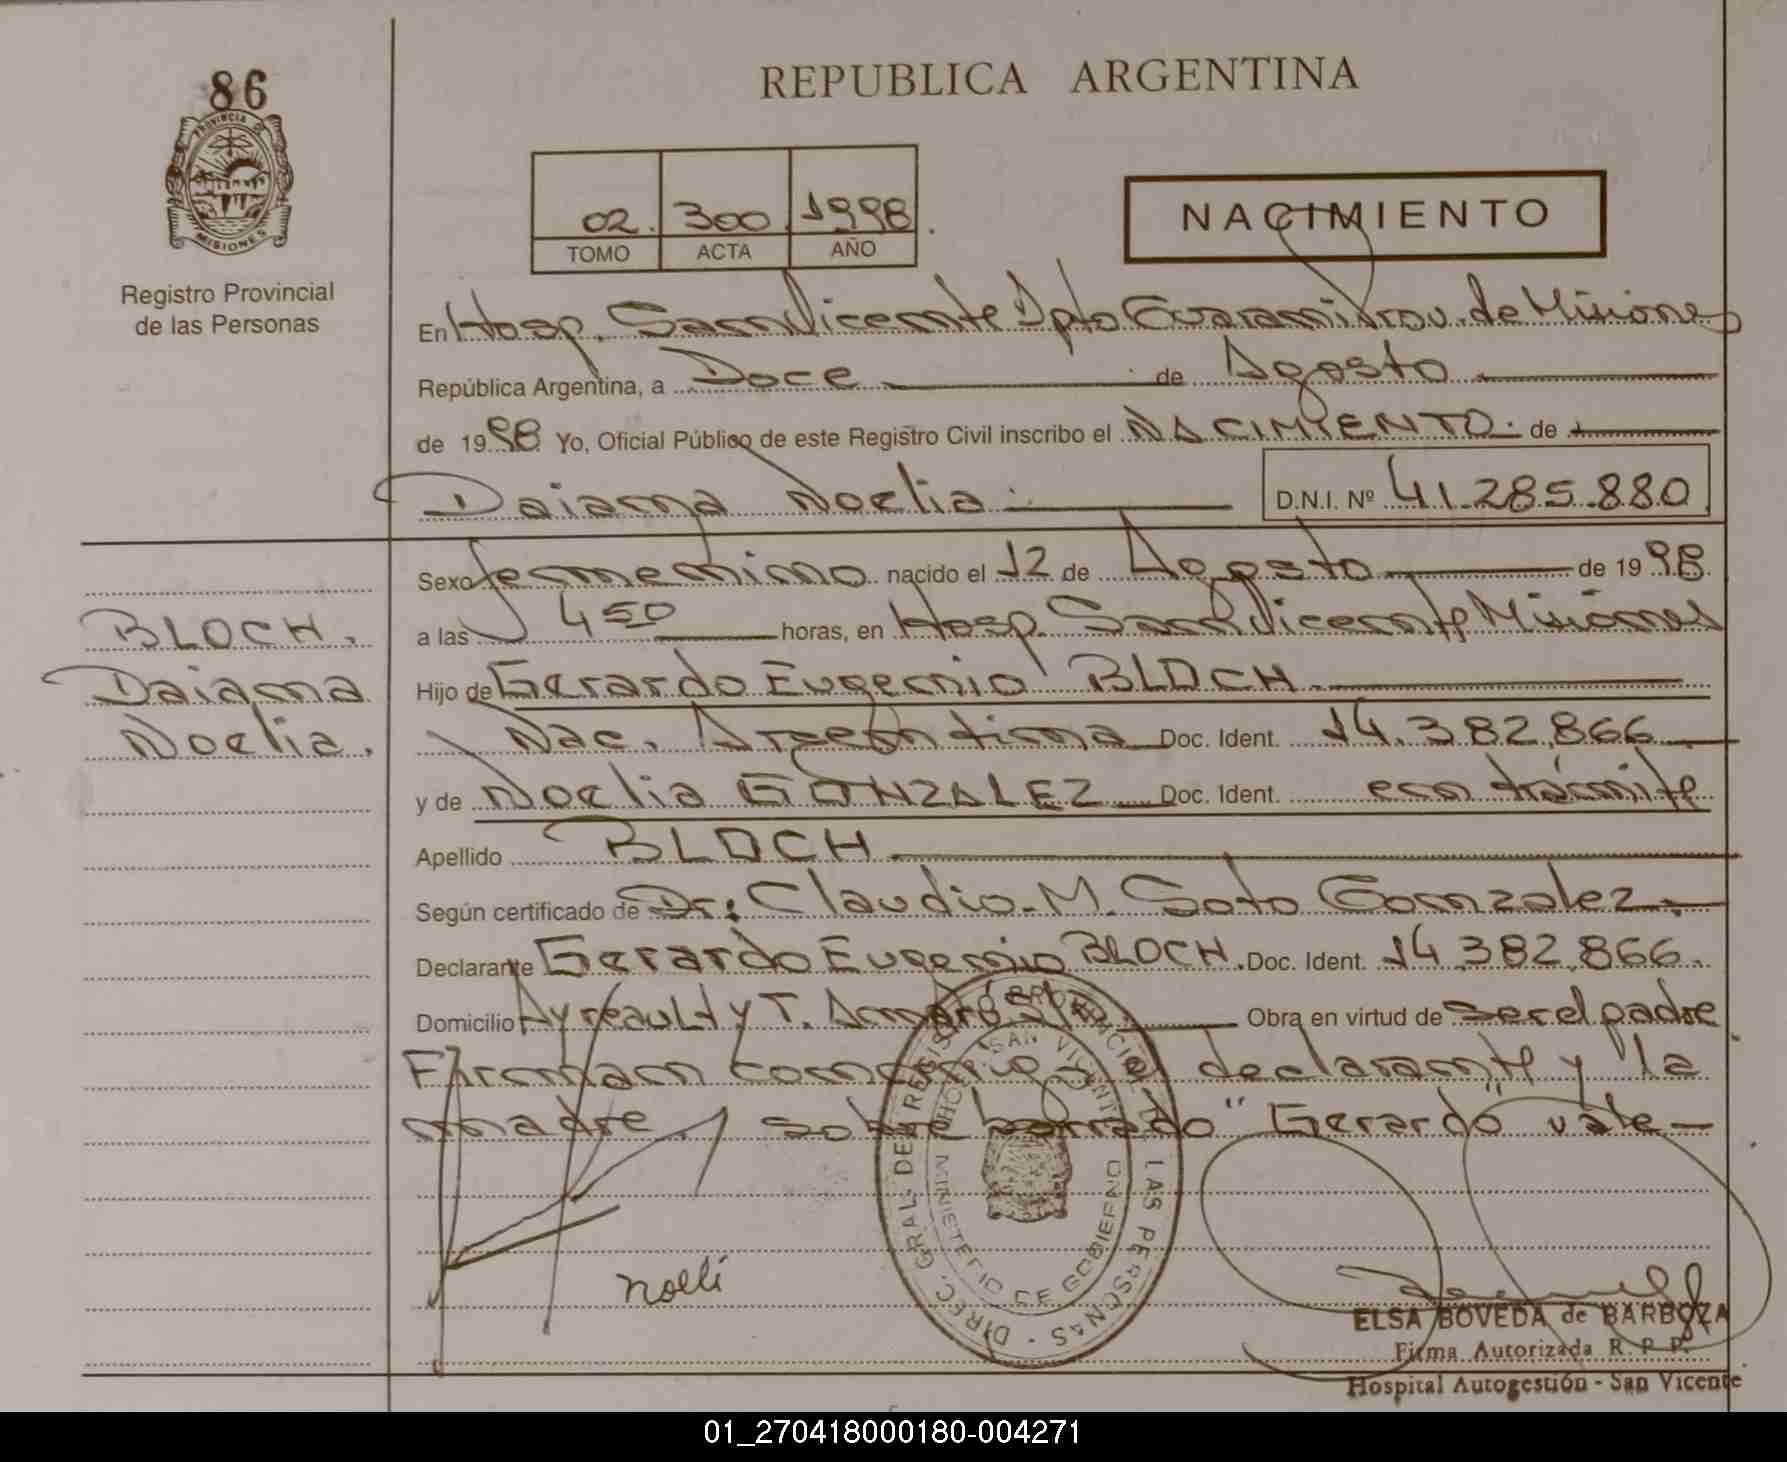 86
PROVINCIA DE
MISIONES
Registro Provincial
de las Personas
REPUBLICA ARGENTINA
02. 300 1998
TOMO ACTA AÑO
NACIMIENTO
En Hosp. San Vicente Dpto Guarani Prov. de Misiones
República Argentina, a Doce de Agosto
de 1998 Yo, Oficial Público de este Registro Civil inscribo el NACIMIENTO. de
Daiana Noelia D.N.I. Nº 41.285.880
Sexo femenino nacido el 12 de Agosto de 1998.
a las 4 50 horas, en Hosp. San Vicente Misiones
Hijo de Gerardo Eugenio BLOCH.
Nac. Argentina Doc. Ident. 14.382.866
y de Noelia GONZALEZ Doc. Ident. en trámite
Apellido BLOCH
Según certificado de Dr: Claudio M. Soto Gonzalez.
Declarante Gerardo Eugenio BLOCH. Doc. Ident. 14.382.866.
Domicilio Ayreault y T. Obra en virtud de ser el padre
Firman conmigo el declarante y la
madre, sobre borrado "Gerardo" vale
BLOCH.
Daiana
Noelia.
DIREC. GRAL. DE REGISTRO PROVINCIAL DE LAS PERSONAS
HOSP. SAN VICENTE
MINISTERIO DE GOBIERNO
Nolli
ELSA BOVEDA de BARBOZA
Firma Autorizada R. P. P.
Hospital Autogestión - San Vicente
01_270418000180-004271